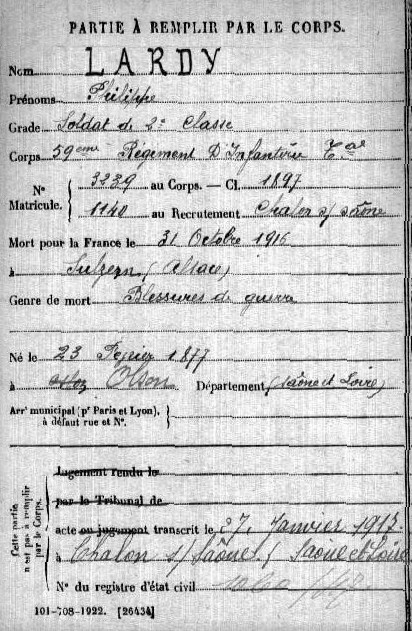 PARTIE À REMPLIR PAR LE CORPS.
Nom LARDY
Prénoms Philippe
Grade Soldat de 2e Classe
Corps 59eme Régiment D'Infanterie Tale
N° Matricule. { 3239 au Corps. — Cl. 1897
1140 au Recrutement Chalon s/ Saône
Mort pour la France le 31 Octobre 1916
à Sulzern (Alsace)
Genre de mort Blessures de guerre
Né le 23 Février 1877
à Oslon Département (Saône et Loire)
Arrt municipal (pr Paris et Lyon), à défaut rue et N°. }
Cette partie n'est pas à remplir par le Corps. {
Jugement rendu le
par le Tribunal de
acte ou jugement transcrit le 27 Janvier 1917
à Chalon s/ Saône / Saône et Loire
N° du registre d'état civil
101-708-1922. [26434]